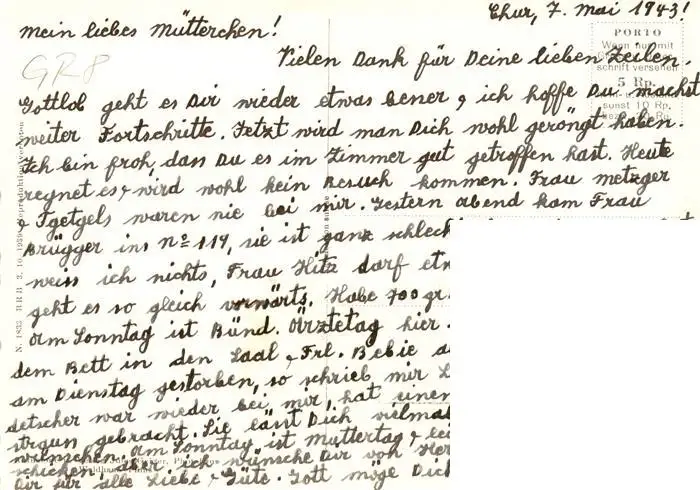 Chur, 7. Mai 1943!
mein liebes Mütterchen!
GR8
Vielen Dank für Deine lieben Zeilen.
PORTO
Wenn nur mit
schrift versehen
5 Rp.
sonst 10 Rp.
Gottlob geht es Dir wieder etwas besser, ich hoffe Du machst
weiter Fortschritte. Jetzt wird man Dich wohl geröngt haben.
Ich bin froh, dass Du es im Zimmer gut getroffen hast. Heute
regnet es & wird wohl kein Besuch kommen. Frau Metzger
& Tgetgels waren nie bei mir. Gestern abend kam Frau
Brügger ins No 119, sie ist ganz schlech
weiss ich nichts, Frau Hitz darf etw
geht es so gleich vorwärts. Habe 700 gr.
Am Sonntag ist Bünd. Ärztetag hier.
dem Bett in den Saal & Frl. Bebie a
am Dienstag gestorben, so schrieb mir
detscher war wieder bei mir, hat einen
gebracht. Sie lässt Dich vielmal
wünschen. Am Sonntag ist Muttertag &
schicken, aber ich wünsche Dir von Her
Dir für alle Liebe & Güte. Gott möge Dich